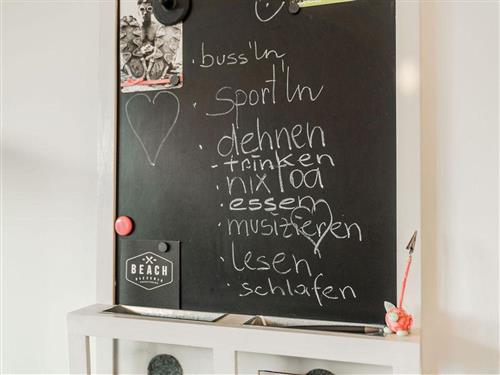 · buss'ln
· sport'ln
· dehnen
- trinken
· nix toa
· essen
· musizieren
· lesen
· schlafen
BEACH